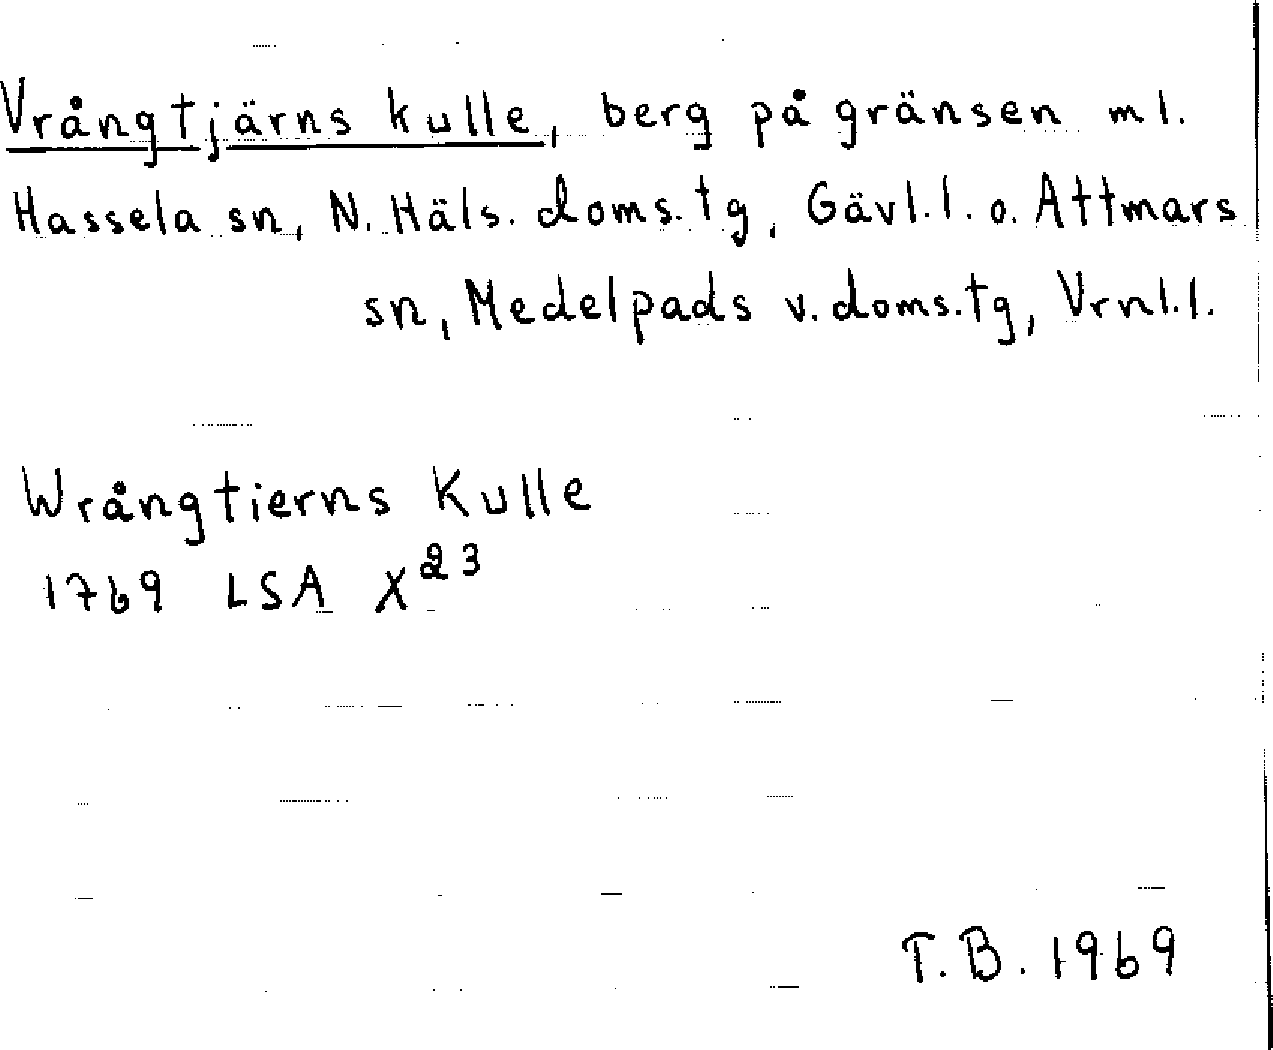 Vrångtjärns kulle, berg på gränsen ml.
Hassela sn, N. Häls. doms.tg, Gävl.l. o. Attmars
sn, Medelpads v. doms.tg, Vrnl.l.
Wrångtierns Kulle
1769 LSA X²³
T.B. 1969